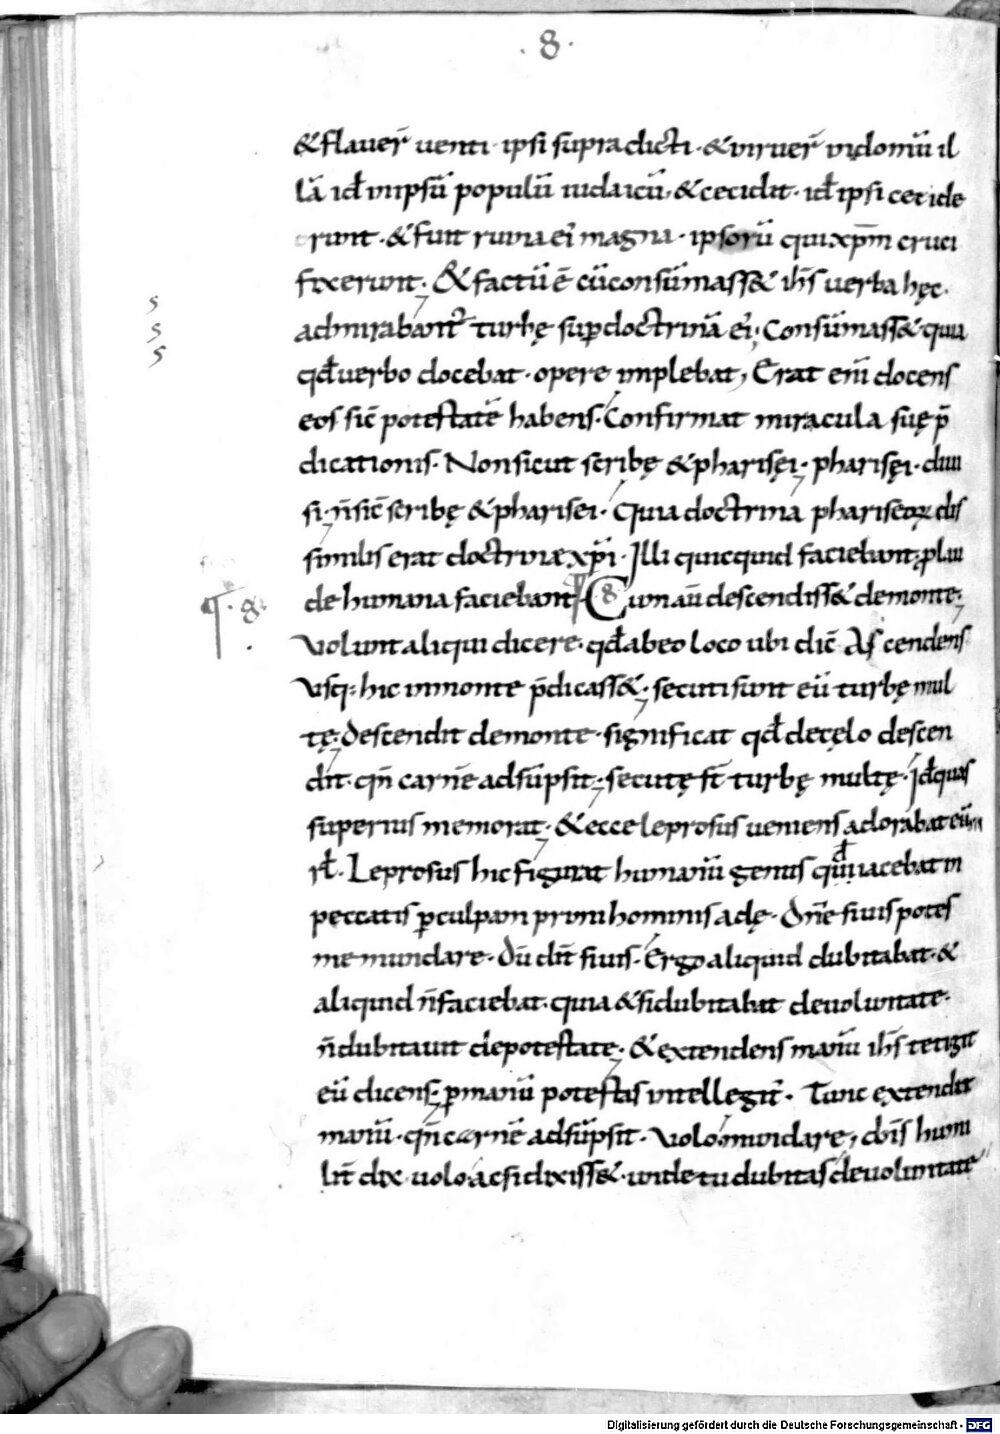 · 8 ·
& flauer̄ uenti · ipsi supradicti · & irruer̄ in domū il
lā id̄ in ipsū populū iudaicū · & cecidit · id̄ ipsi cecide
runt · & fuit ruina ei᾿ magna · ipsorū qui xp̄m cruci
fixerunt · & factū ē cū consūmass& ih̄s uerba hęc ·
admirabant᾿ turbę sup doctrinā ei᾿ · Consūmass& quia
qd̄ uerbo docebat · opere implebat, Erat eni̅ docens
eos sic̄ potestatē habens · Confirmat miracula suę p̄
dicationis · Non sicut scribę & pharisęi · pharisęi · diui
si · n̄ sic̄ scribę & pharisei · Quia doctrina phariseoꝝ dis
similis erat doctrinæ xp̄i · Illi quicquid faciebant, ꝓ lau
5
5
5
¶ · 8 ·
de humana faciebant ¶ 8 Cum aū descendiss& de monte ·
Volunt aliqui dicere · qd̄ ab eo loco ubi dic̄ Ascendens
Vsq; hic in monte p̄dicass& · secuti sunt eū turbę mul
tę · Descendit de monte · significat qd̄ de cęlo descen
dit · qn̄ carnē adsūpsit · secutę st̄ turbę multę · Id̄ quas
superius memorat · & ecce leprosus ueniens adorabat eū
rł · Leprosus hic figurat humanū genus qd̄ iacebat in
peccatis ꝑ culpam primi hominis adę · Dn̄e si uis potes
me mundare · Dū dn̄t si uis · Ergo aliquid dubitabat · &
aliquid n̄ faciebat · quia & si dubitabat de uoluntate ·
n̄ dubitauit de potestate · & extendens manū ih̄s tetigit
eū dicens · ꝑ manū potestas intellegit᾿ · Tunc extendit
manū · qn̄ carnē adsūpsit · Volo mundare, dn̄s humi
lit̄ dix̄ uolo ac si dixiss& · unde tu dubitas de uoluntate
Digitalisierung gefördert durch die Deutsche Forschungsgemeinschaft - DFG